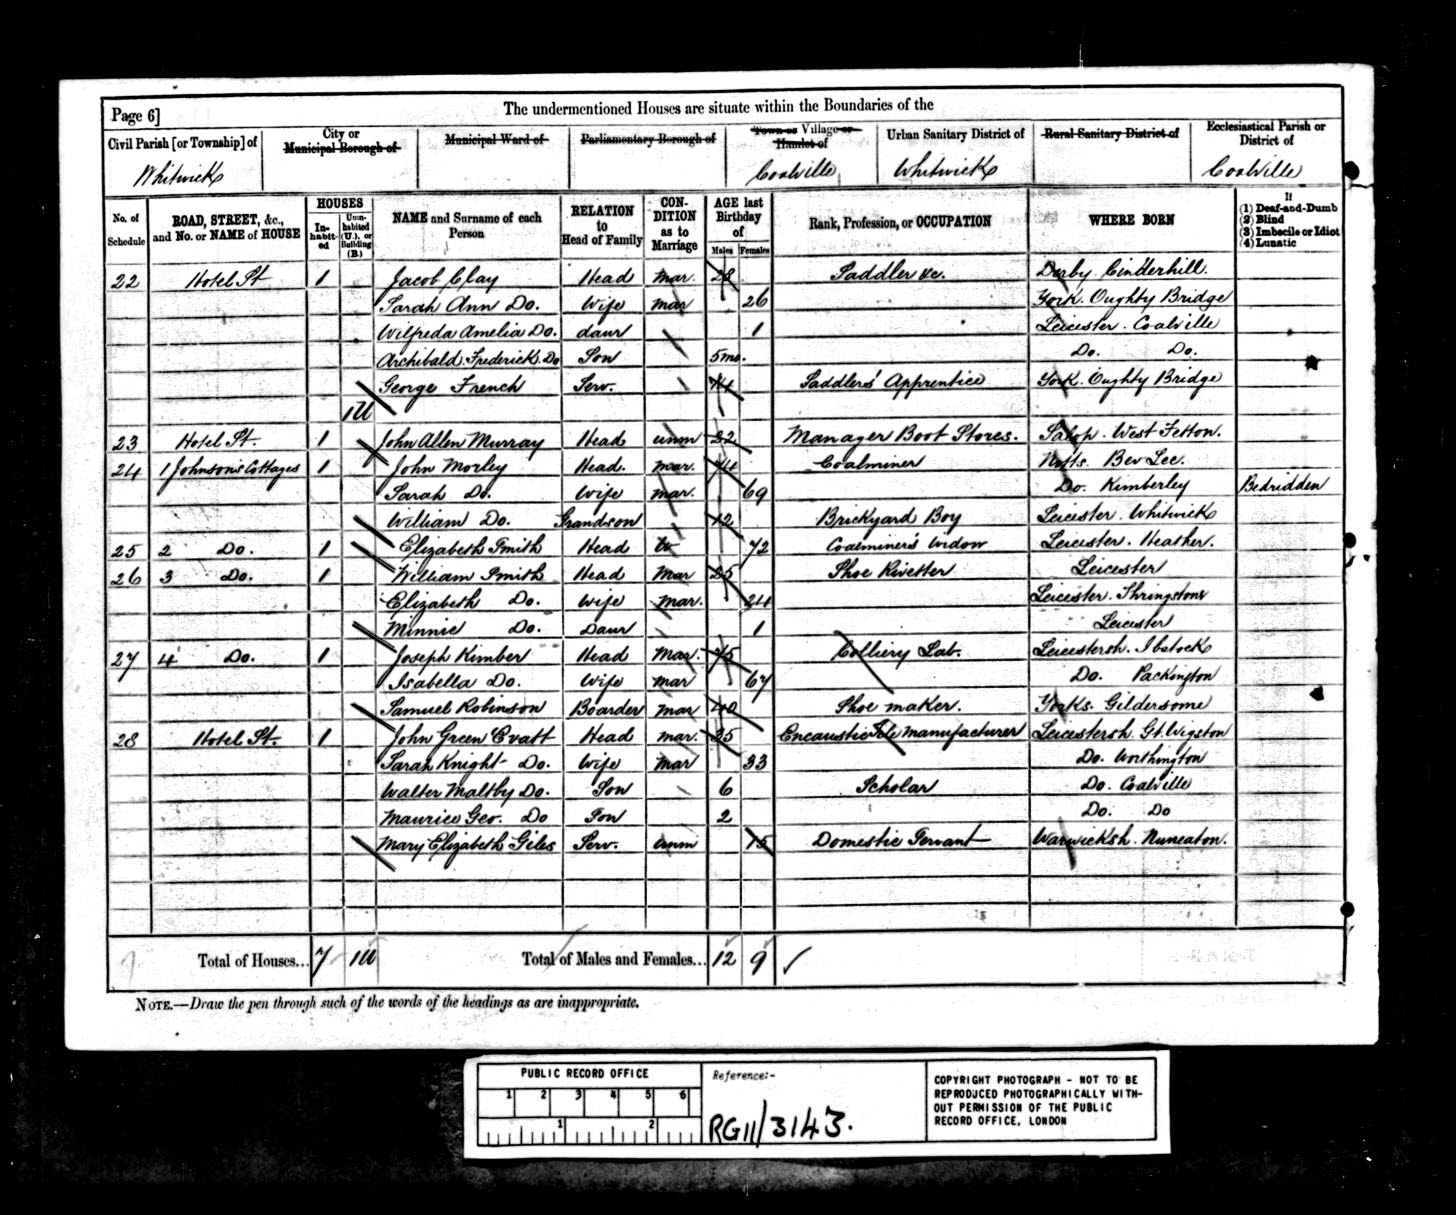 Page 6]
The undermentioned Houses are situate within the Boundaries of the
Civil Parish [or Township] of
Whitwick
City or Municipal Borough of
Municipal Ward of
Parliamentary Borough of
Town or Village or Hamlet of
Coalville
Urban Sanitary District of
Whitwick
Rural Sanitary District of
Ecclesiastical Parish or District of
Coalville
No. of Schedule
ROAD, STREET, &c., and No. or NAME of HOUSE
HOUSES
In-habit-ed
Unin-habited (U.), or Building (B.)
NAME and Surname of each Person
RELATION to Head of Family
CON-DITION as to Marriage
AGE last Birthday of
Males Females
Rank, Profession, or OCCUPATION
WHERE BORN
If
(1) Deaf-and-Dumb
(2) Blind
(3) Imbecile or Idiot
(4) Lunatic
22 Hotel St 1 Jacob Clay Head Mar. 28 Saddler &c. Derby Cinderhill.
Sarah Ann Do. Wife Mar 26 York. Oughty Bridge
Wilfreda Amelia Do. daur 1 Leicester. Coalville
Archibald Frederick Do Son 5 mo. Do. Do.
George French Serv. 14 Saddlers' Apprentice York. Oughty Bridge
1U
23 Hotel St. 1 John Allen Murray Head unm 22 Manager Boot Stores. Salop. West Felton.
24 1 Johnson's Cottages 1 John Morley Head. mar. 74 Coalminer Notts.
Sarah Do. Wife mar. 69 Do. Kimberley Bedridden
William Do. Grandson 12 Brickyard Boy Leicester. Whitwick
25 2 Do. 1 Elizabeth Smith Head W 72 Coalminer's Widow Leicester. Heather.
26 3 Do. 1 William Smith Head Mar 25 Shoe Rivetter Leicester
Elizabeth Do. Wife Mar. 24 Leicester. Thringstone
Minnie Do. Daur 1 Leicester
27 4 Do. 1 Joseph Kimber Head Mar. 75 Colliery Lab. Leicestersh. Ibstock
Isabella Do. Wife mar 67 Do. Packington
Samuel Robinson Boarder Mar 40 Shoe maker. Yorks. Gildersome
28 Hotel St. 1 John Green Evatt Head mar. 35 Encaustic Tile Manufacturer Leicestersh. Gt. Wigston
Sarah Knight Do. Wife Mar 33 Do. Worthington
Walter Maltby Do. Son 6 Scholar Do. Coalville
Maurice Geo. Do Son 2 Do. Do
Mary Elizabeth Giles Serv. Unm 15 Domestic Servant Warwicksh. Nuneaton.
Total of Houses... 7 1U Total of Males and Females... 12 9
NOTE.—Draw the pen through such of the words of the headings as are inappropriate.
PUBLIC RECORD OFFICE
1 2 3 4 5 6
1 2
Reference:-
RG11/3143.
COPYRIGHT PHOTOGRAPH - NOT TO BE
REPRODUCED PHOTOGRAPHICALLY WITH-
OUT PERMISSION OF THE PUBLIC
RECORD OFFICE, LONDON